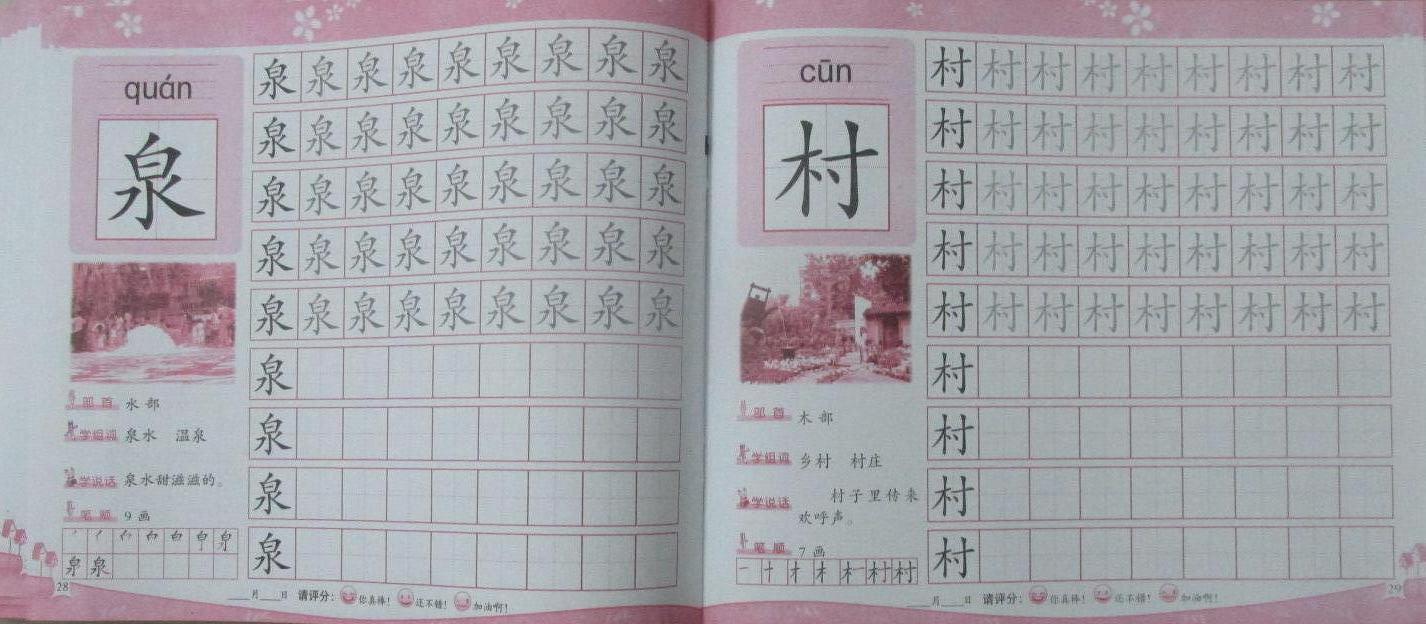 quán
泉
泉 泉 泉 泉 泉 泉 泉 泉 泉
泉 泉 泉 泉 泉 泉 泉 泉 泉
泉 泉 泉 泉 泉 泉 泉 泉 泉
泉 泉 泉 泉 泉 泉 泉 泉 泉
泉 泉 泉 泉 泉 泉 泉 泉 泉
泉
泉
泉
泉
部首 水部
学组词 泉水 温泉
学说话 泉水甜滋滋的。
笔顺 9画
泉 泉
28
月 日 请评分: 你真棒! 还不错! 加油啊!
cūn
村
村 村 村 村 村 村 村 村 村
村 村 村 村 村 村 村 村 村
村 村 村 村 村 村 村 村 村
村 村 村 村 村 村 村 村 村
村 村 村 村 村 村 村 村 村
村
村
村
村
部首 木部
学组词 乡村 村庄
学说话 村子里传来
欢呼声。
笔顺 7画
一 十 才 木 村 村
月 日 请评分: 你真棒! 还不错! 加油啊!
29